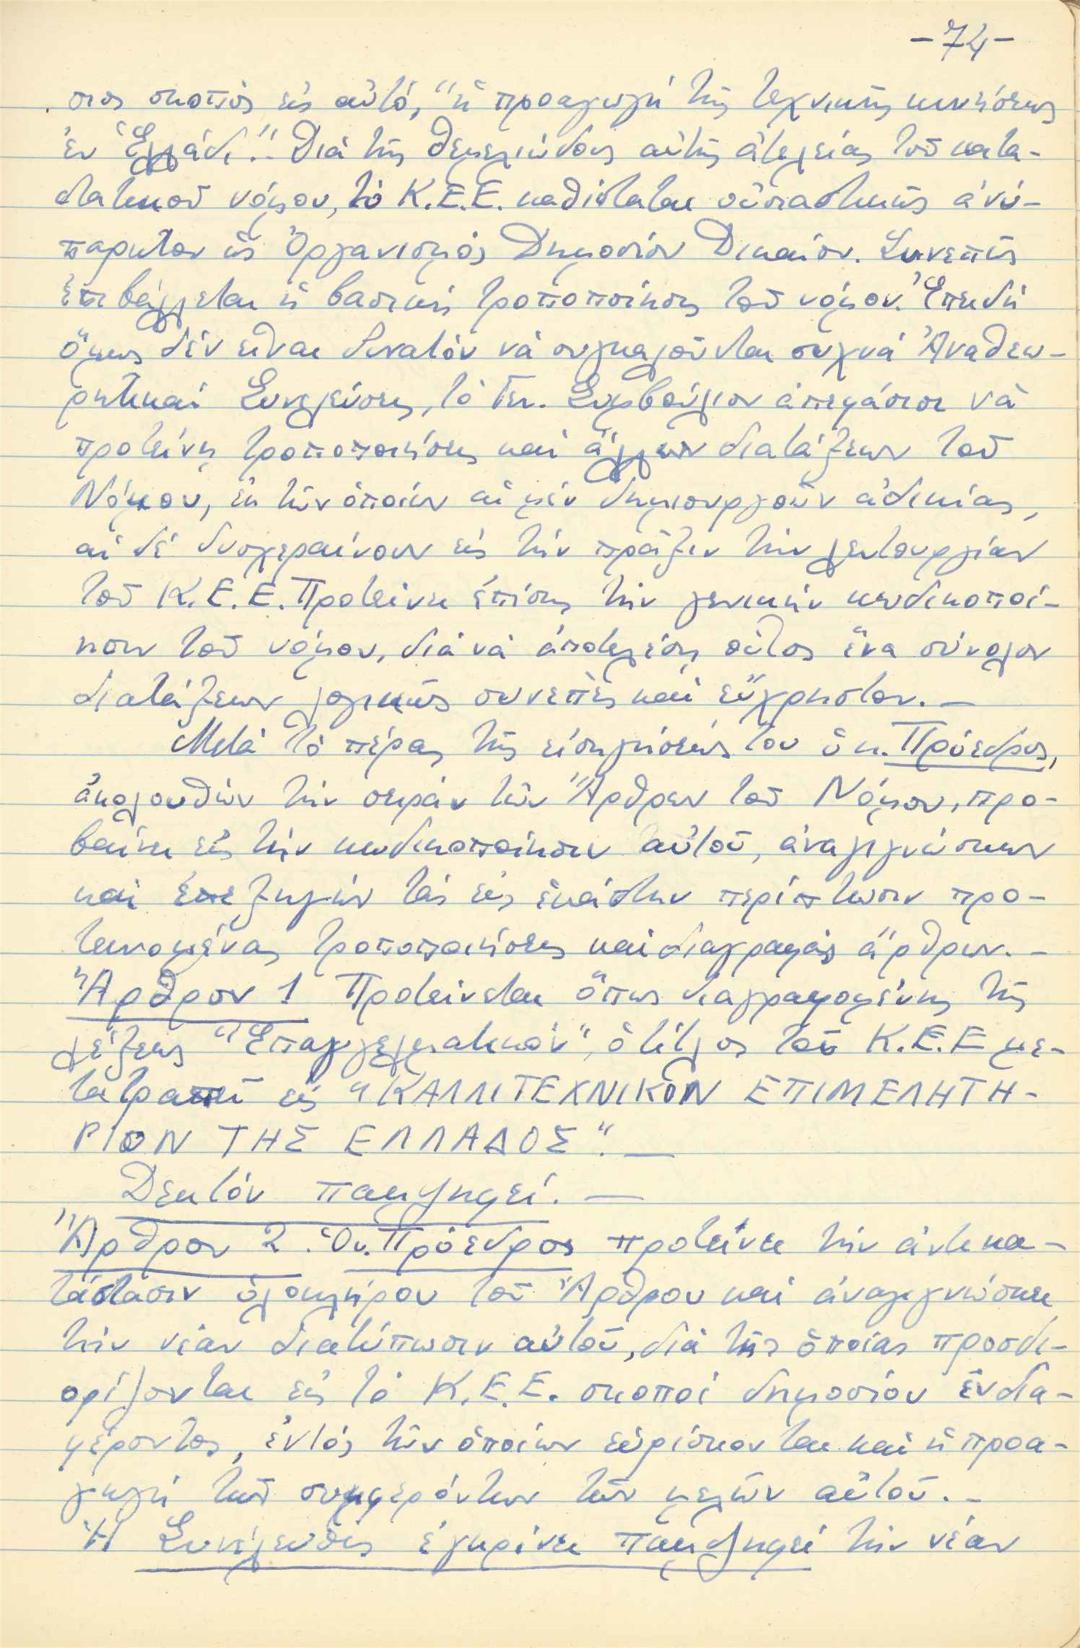 -74-
σιος σκοπὸς εἰς αὐτό, "ἡ προαγωγὴ τῆς τεχνικῆς κινήσεως
ἐν Ἑλλάδι". Διὰ τῆς θεμελιώδους αὐτῆς ἀτελείας τοῦ κατα-
στατικοῦ νόμου, τὸ Κ.Ε.Ε. καθίσταται οὐσιαστικῶς ἀνύ-
παρκτον ὡς Ὀργανισμὸς Δημοσίου Δικαίου. Συνεπῶς
ἐπιβάλλεται ἡ βασικὴ τροποποίησις τοῦ νόμου. Ἐπειδὴ
ὅμως δὲν εἶναι δυνατὸν νὰ συγκαλοῦνται συχνὰ Ἀναθεω-
ρητικαὶ Συνελεύσεις, τὸ Γεν. Συμβούλιον ἀπεφάσισε νὰ
προτείνῃ τροποποιήσεις καὶ ἄλλων διατάξεων τοῦ
Νόμου, ἐκ τῶν ὁποίων αἱ μὲν δημιουργοῦν ἀδικίας,
αἱ δὲ δυσχεραίνουν εἰς τὴν πρᾶξιν τὴν λειτουργίαν
τοῦ Κ.Ε.Ε. Προτείνει ἐπίσης τὴν γενικὴν κωδικοποί-
ησιν τοῦ νόμου, διὰ νὰ ἀποτελέσῃ οὗτος ἕνα σύνολον
διατάξεων λογικῶς συνεπὲς καὶ εὔχρηστον.-
Μετὰ τὸ πέρας τῆς εἰσηγήσεώς του ὁ κ. Πρόεδρος,
ἀκολουθῶν τὴν σειρὰν τῶν Ἄρθρων τοῦ Νόμου, προ-
βαίνει εἰς τὴν κωδικοποίησιν αὐτοῦ, ἀναγιγνώσκων
καὶ ἐπεξηγῶν τὰς εἰς ἑκάστην περίπτωσιν προ-
τεινομένας τροποποιήσεις καὶ διαγραφὰς ἄρθρων.-
Ἄρθρον 1 Προτείνεται ὅπως διαγραφομένης τῆς
λέξεως "Ἐπαγγελματικόν", ὁ τίτλος τοῦ Κ.Ε.Ε με-
τατραπῇ εἰς "ΚΑΛΛΙΤΕΧΝΙΚΟΝ ΕΠΙΜΕΛΗΤΗ-
ΡΙΟΝ ΤΗΣ ΕΛΛΑΔΟΣ".-
Δεκτὸν παμψηφεί.-
Ἄρθρον 2. Ὁ κ. Πρόεδρος προτείνει τὴν ἀντικα-
τάστασιν ὁλοκλήρου τοῦ Ἄρθρου καὶ ἀναγιγνώσκει
τὴν νέαν διατύπωσιν αὐτοῦ, διὰ τῆς ὁποίας προσδι-
ορίζονται εἰς τὸ Κ.Ε.Ε. σκοποὶ δημοσίου ἐνδια-
φέροντος, ἐντὸς τῶν ὁποίων εὑρίσκονται καὶ ἡ προα-
γωγὴ τῶν συμφερόντων τῶν μελῶν αὐτοῦ.-
Ἡ Συνέλευσις ἐγκρίνει παμψηφεὶ τὴν νέαν